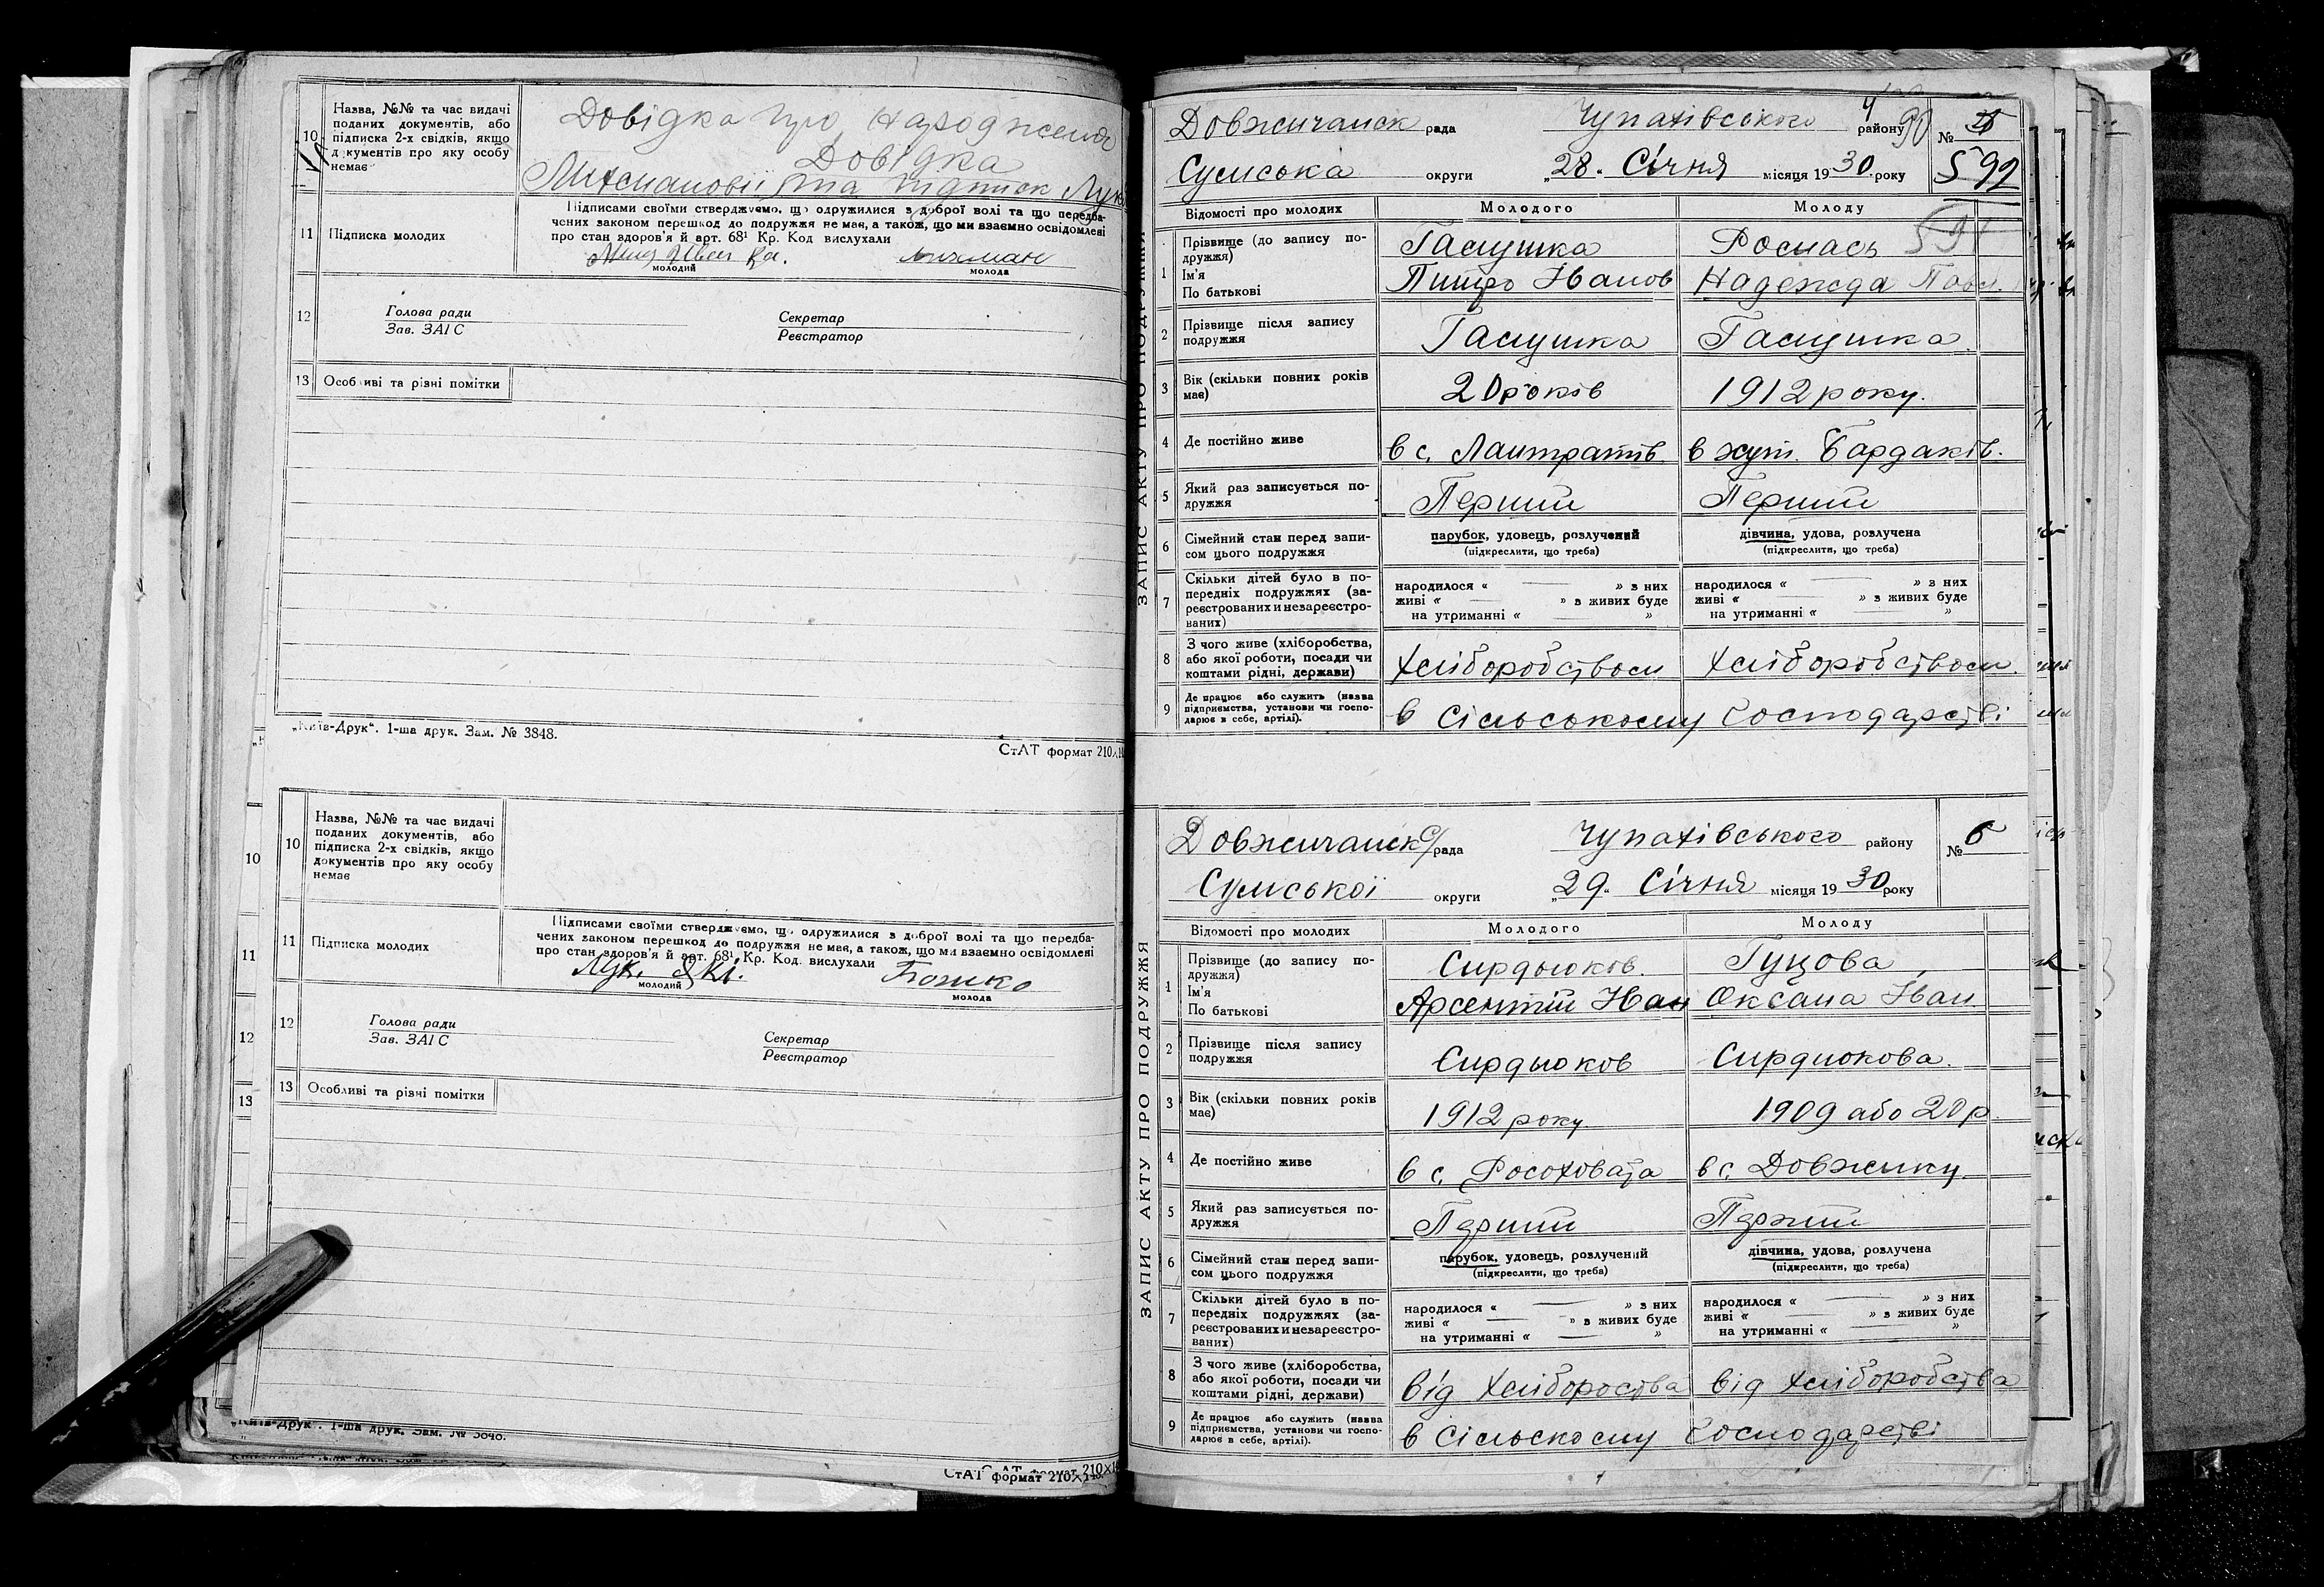 10
Назва, №№ та час видачі
поданих документів, або
підписка 2-х свідків, якщо
д кументів про яку особу
немає
Довідка про Народження
Довідка
та підписк Лук
11
Підписка молодих
Підписами своїми стверджуємо, що одружилися з доброї волі та що передба-
чених законом перешкод до подружжя не має, а також, що ми взаємно освідомлені
про стан здоров'я й арт. 68¹ Кр. Код вислухали
молодий
молода
12
Голова ради
Зав. ЗАГС
Секретар
Реєстратор
13
Особ иві та різні помітки
„Київ-Друк“. 1-ша друк. Зам. № 3848.
СтАТ формат 210×14
10
10
Назва, №№ та час видачі
поданих документів, або
підписка 2-х свідків, якщо
документів про яку особу
немає
11
11
Підписка молодих
Підписами своїми стверджуємо, що одружилися з доброї волі та що передба-
чених законом перешкод до подружжя не має, а також, що ми взаємно освідомлені
про стан здоров'я й арт. 68¹ Кр. Код. вислухали
молодий
Божко
молода
12
12
Голова ради
Зав. ЗАГС
Секретар
Реєстратор
13
13
Особливі та різні помітки
„Київ-Друк“. 1-ша друк. Зам. № 3848.
СтАТ формат 210×148
ЗАПИС АКТУ ПРО ПОДРУЖЖЯ
Довжичанск рада Чупахівського району 90 №
Сумська округи „28. Січня місяця 1930 року 592
Відомості про молодих Молодого Молоду
591
1
Прізвище (до запису по-
дружжя)
Ім'я
По батькові
Галушка
Питро Іванов
Ромась
Надежда Павл.
2
Прізвище після запису
подружжя
Галушка
Галушка.
3
Вік (скільки повних років
має)
20 років
1912 року.
4
Де постійно живе
в с.
в хут. Бардаків.
5
Який раз записується по-
дружжя
Перший
Перший
6
Сімейний стан перед запи-
сом цього подружжя
парубок, удовець, розлучений
(підкреслити, що треба)
дівчина, удова, розлучена
(підкреслити, що треба)
7
Скільки дітей було в по-
передніх подружжях (за-
реєстрованих и незареєстро-
ваних)
народилося « — » з них
живі « — » з живих буде
на утриманні « — »
народилося « — » з них
живі « — » з живих буде
на утриманні « »
8
З чого живе (хліборобства,
або якої роботи, посади чи
коштами рідні, держави)
Хліборобством
Хліборобством.
9
Де працює або служить (назва
підприємства, установи чи госпо-
дарює в себе, артілі).
в Сільському Господарстві
ЗАПИС АКТУ ПРО ПОДРУЖЖЯ
Довжичанск с/рада Чупахівського району № 6
Сумської округи „29. Січня місяця 1930 року
Відомості про молодих Молодого Молоду
1
Прізвище (до запису по-
дружжя)
Ім'я
По батькові
Сирдюков.
Арсентій Іван
Гуцова
Оксана Іван.
2
Прізвище після запису
подружжя
Сирдюков
Сирдюкова.
3
Вік (скільки повних років
має)
1912 року
1909 або 20 р.
4
Де постійно живе
в с. Росоховата
в с. Довжику.
5
Який раз записується по-
дружжя
Перший
Пержий
6
Сімейний стан перед запи-
сом цього подружжя
парубок, удовець, розлучений
(підкреслити, що треба)
дівчина, удова, розлучена
(підкреслити, що треба)
7
Скільки дітей було в по-
передніх подружжях (за-
реєстрованих и незареєстро-
ваних)
народилося « — » з них
живі « — » з живих буде
на утриманні « — »
народилося « — » з них
живі « — » з живих буде
на утриманні « »
8
З чого живе (хліборобства,
або якої роботи, посади чи
коштами рідні, держави)
Від Хлібороства
Від Хліборобства
9
Де працює або служить (назва
підприємства, установи чи госпо-
дарює в себе, артілі).
в Сільскому Господарстві